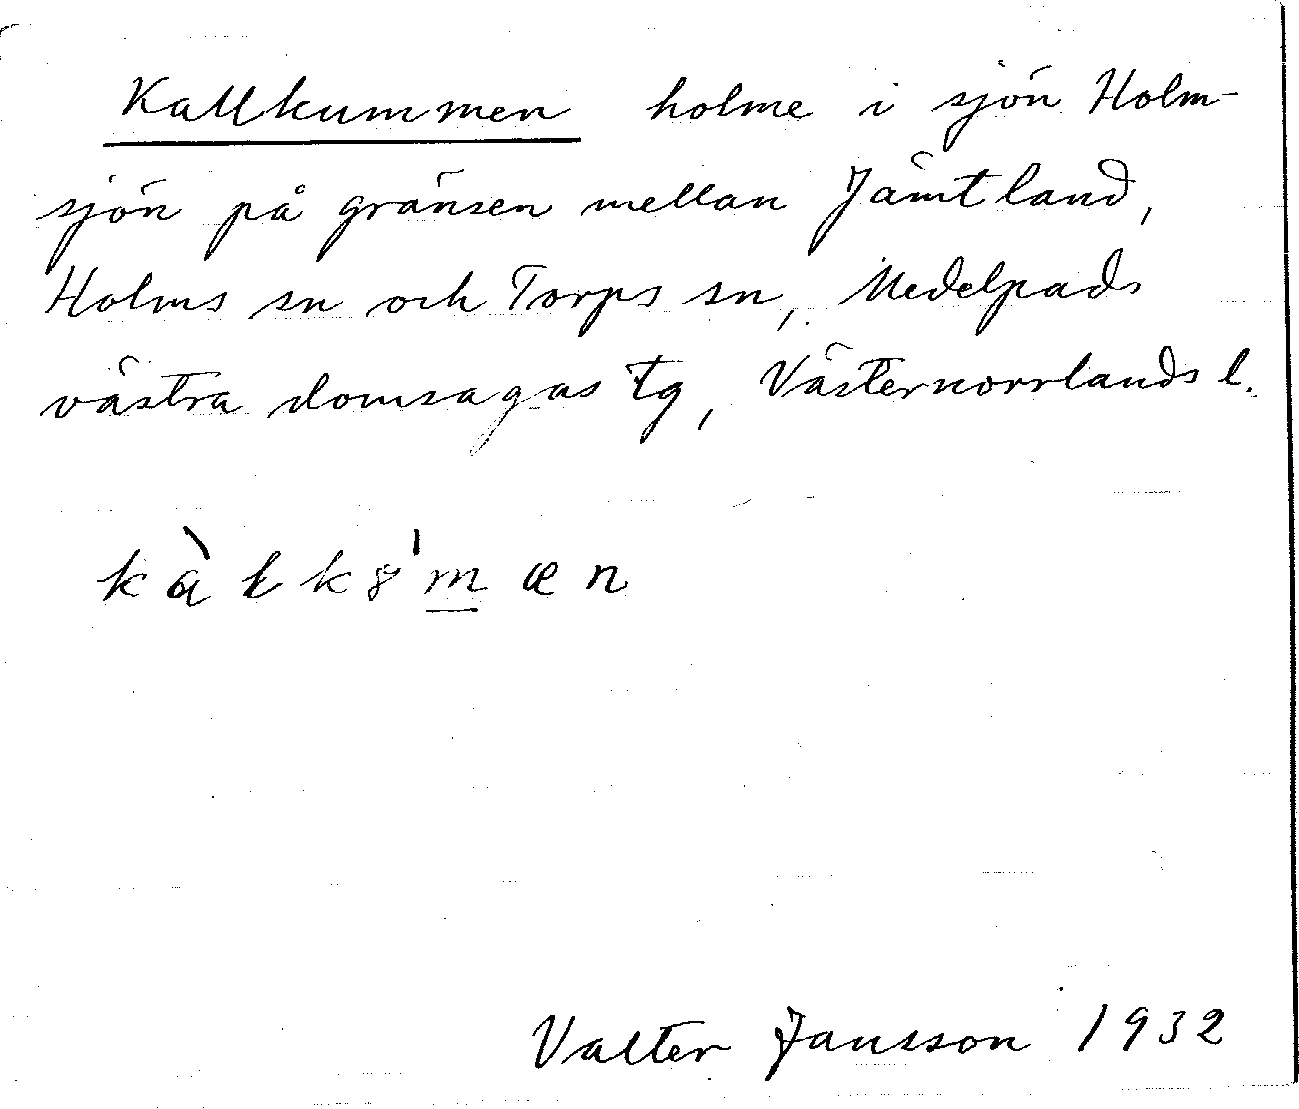 Kallkummen holme i sjön Holm-
sjön på gränsen mellan Jämtland,
Holms sn och Torps sn, Medelpads
västra domsagas tg, Västernorrlands l.
kàłkȣ'm̲æn
Valter Jansson 1932